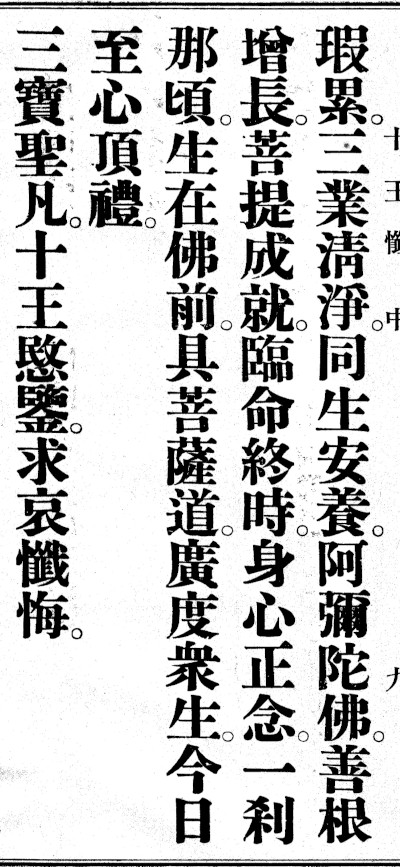 十王懺中　九
瑕累。三業清淨。同生安養。阿彌陀佛。善根
增長。菩提成就。臨命終時。身心正念。一剎
那頃。生在佛前。具菩薩道。廣度眾生。今日
至心頂禮。
三寶聖凡。十王愍鑒。求哀懺悔。